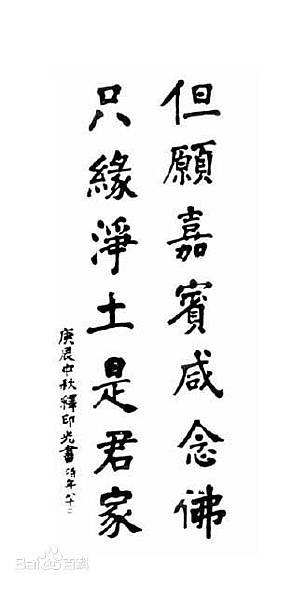 但願嘉賓咸念佛
只緣淨土是君家
庚辰中秋釋印光書時年八十二
Bai百科